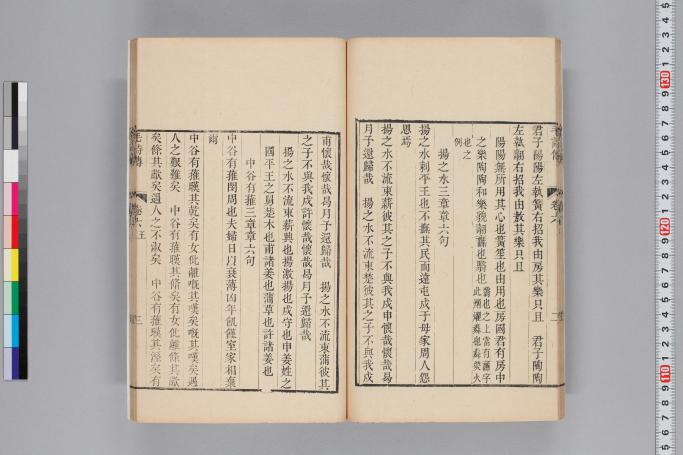 君子陽陽左執簧右招我由房其樂只且　君子陶陶
左執翿右招我由敖其樂只且
陽陽無所用其心也簧笙也由用也房國君有房中
之樂陶陶和樂貌翿纛也翳也
也之
例
揚之水三章章六句
揚之水刺平王也不撫其民而遠屯戍于母家周人怨
思焉
揚之水不流束薪彼其之子不與我戍申懷哉懷哉曷
月予還歸哉　揚之水不流束楚彼其之子不與我戍
甫懷哉懷哉曷月予還歸哉　揚之水不流束蒲彼其
之子不與我戍許懷哉懷哉曷月予還歸哉
揚之水不流束薪興也揚激揚也戍守也申姜姓之
國平王之舅楚木也甫諸姜也蒲草也許諸姜也
中谷有蓷三章章六句
中谷有蓷閔周也夫婦日以衰薄凶年饑饉室家相棄
爾
中谷有蓷暵其乾矣有女仳離嘅其嘆矣嘅其嘆矣遇
人之艱難矣　中谷有蓷暵其脩矣有女仳離條其歗
矣條其歗矣遇人之不淑矣　中谷有蓷暵其溼矣有